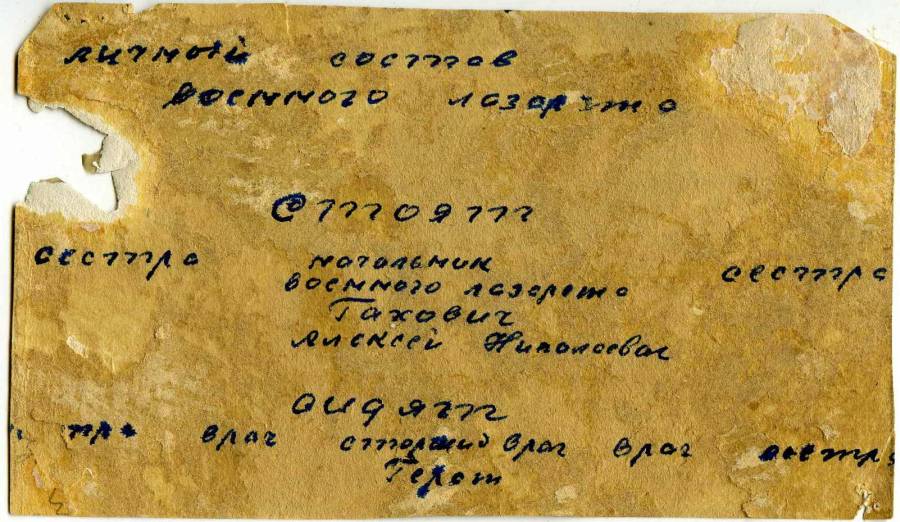 личный состав
военного лазарета
Стоят
сестра начальник сестра
военного лазарета
Гахович
Алексей Николаевич
сидят
врач старший врач врач сестра